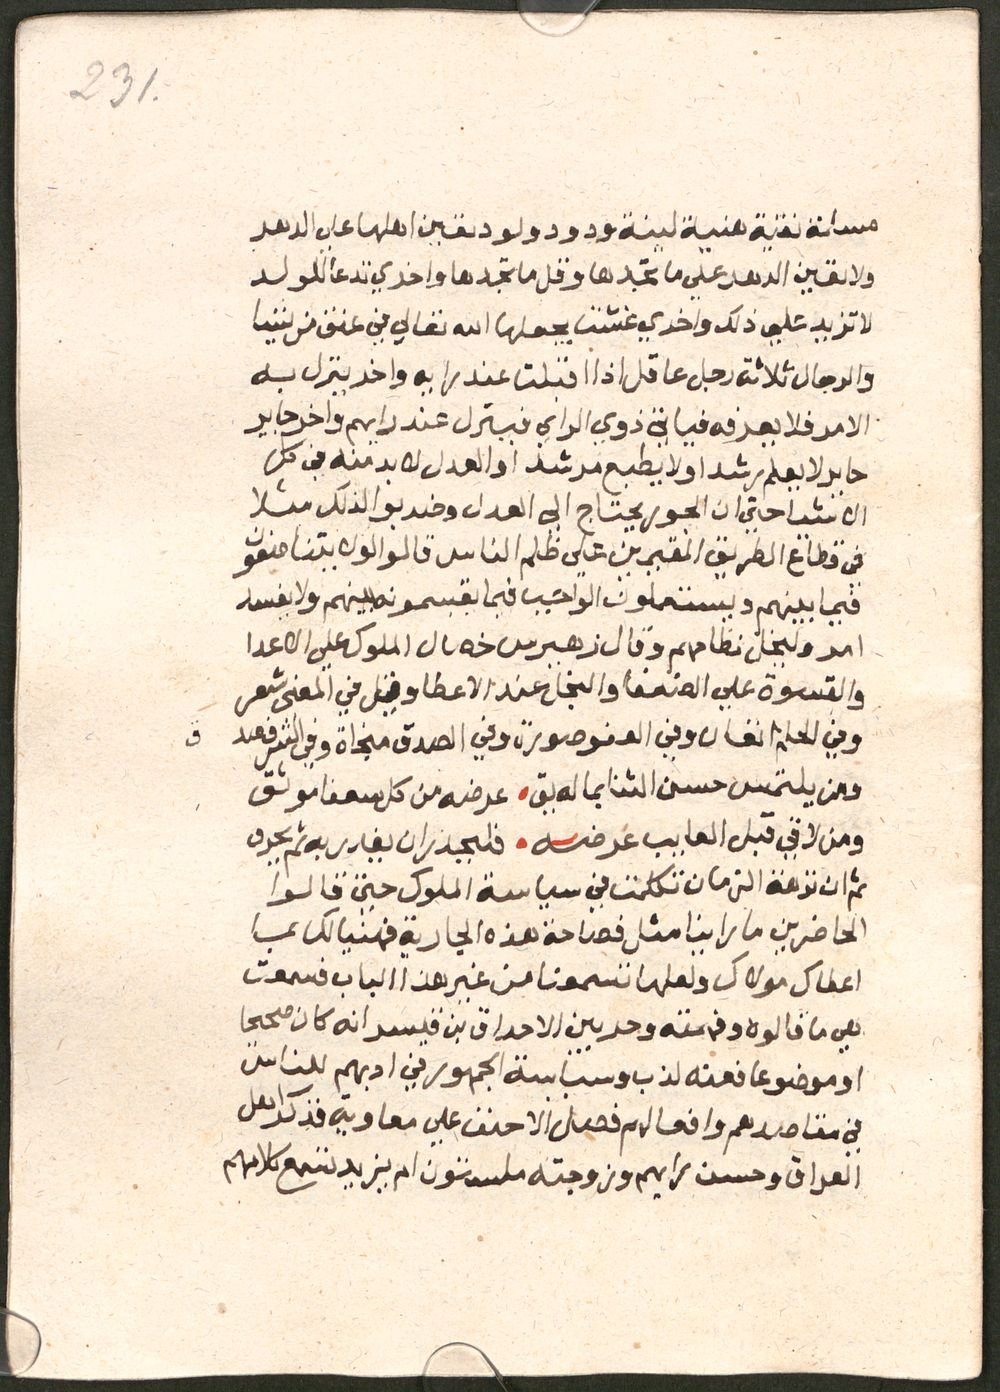 231.
مسلمة نقية هنية لينة ودود ولود تعين اهلها علي الدهر
ولا تعين الدهر علي ما تجدها وقل ما تجدها واخري تدعا للولد
لا تزيد علي ذلك واخري غشنا يجعلها الله تعالي في عنق من يشا
والرجال ثلاثة رجل عاقل اذا اقبلت عند رايه واخر ينزل به
الامر فلا يعرفه فياتي ذوي الراي فينزل عند رايهم واخر حاير
جاير لا يعلم رشدا ولا يطيع مرشدا والعدل لا بد منه في كل
الاشيا حتي ان الجور يحتاج الي العدل وضربوا لذلك مثلا
في قطاع الطريق المقيمين علي ظلم الناس قالوا لولا يتناصفون
فيما بينهم ويستعملون الواجب فيما يقسمونه بينهم ولا يفسد
امر ولبخل نظامهم وقال زهير من خصال الملوك علي الاعدا
والقسوة علي الضعفا والبخل عند الاعطا وقيل في المعني شعر
وفي الحلم اتفان وفي العفو صورة وفي الصدق منجاة وفي الشر فصد
ق
ومن يلتمس حسن الثنا بماله يق • عرضه من كل سعنا موثق
ومن لا قي قبل العايب عرضه • فليجدران يغاربه ثم يحرق
ثم ان نزهة الزمان تكلمت في سياسة الملوك حتي قالوا
الحاضرين ما راينا مثل فصاحة هذه الجارية فهنيا لك بما
اعطاك مولاك ولعلها تسمعنا من غير هذا الباب فسمعت
هي ما قالوه وفهمته وحدبين الاحداق بن قيس انه كان صحيحا
او موضوعا فعنه لذب وسياسة الجمهور في ادبهم للناس
في مقاصدهم وافعالهم فصل الاحنف علي معاوية فذكر اهل
العراق وحسن رايهم وزوجته ملسنون ام يزيد تسمع كلامهم